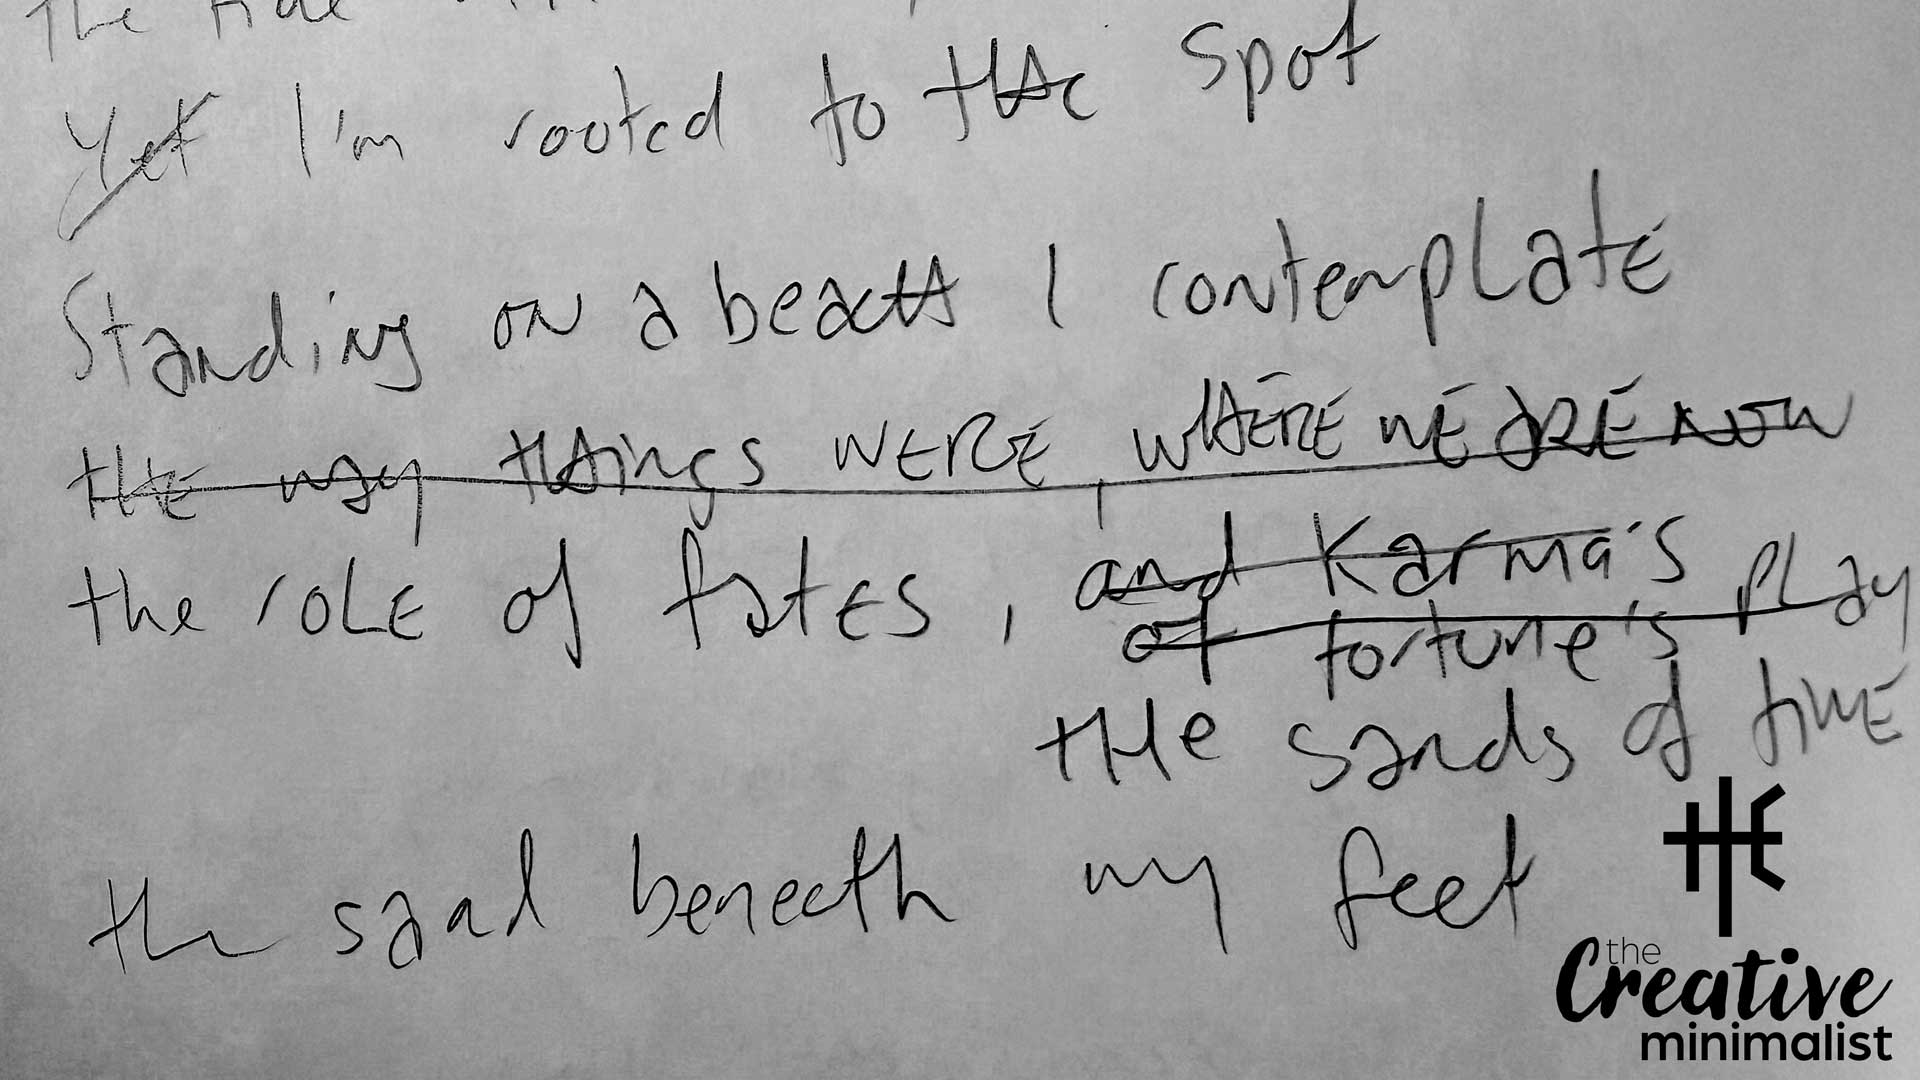 The
Yet I'm rooted to the spot
Standing on a beach I contemplate
the way things were, where we are now
the role of fates, and Karma's
of fortune's play
the sands of time
the sand beneath my feet
tHE
the
Creative
minimalist